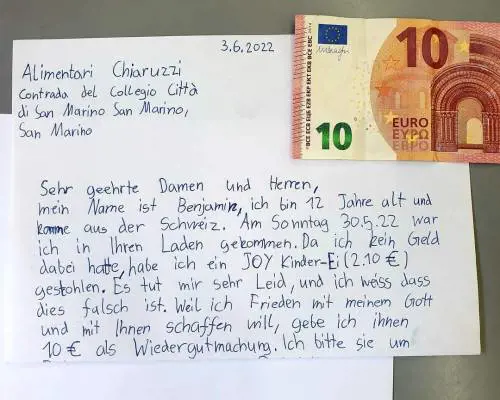 3.6.2022
Alimentari Chiaruzzi
Contrada del Collegio Città
di San Marino San Marino,
San Marino
10
EURO
ΕΥΡΩ
ЕВРО
10
Sehr geehrte Damen und Herren,
mein Name ist Benjamin, ich bin 12 Jahre alt und
komme aus der Schweiz. Am Sonntag 30.5.22 war
ich in Ihren Laden gekommen. Da ich kein Geld
dabei hatte, habe ich ein JOY Kinder-Ei (2.10 €)
gestohlen. Es tut mir sehr Leid, und ich weiss dass
dies falsch ist. Weil ich Frieden mit meinem Gott
und mit Ihnen schaffen will, gebe ich ihnen
10 € als Wiedergutmachung. Ich bitte sie um